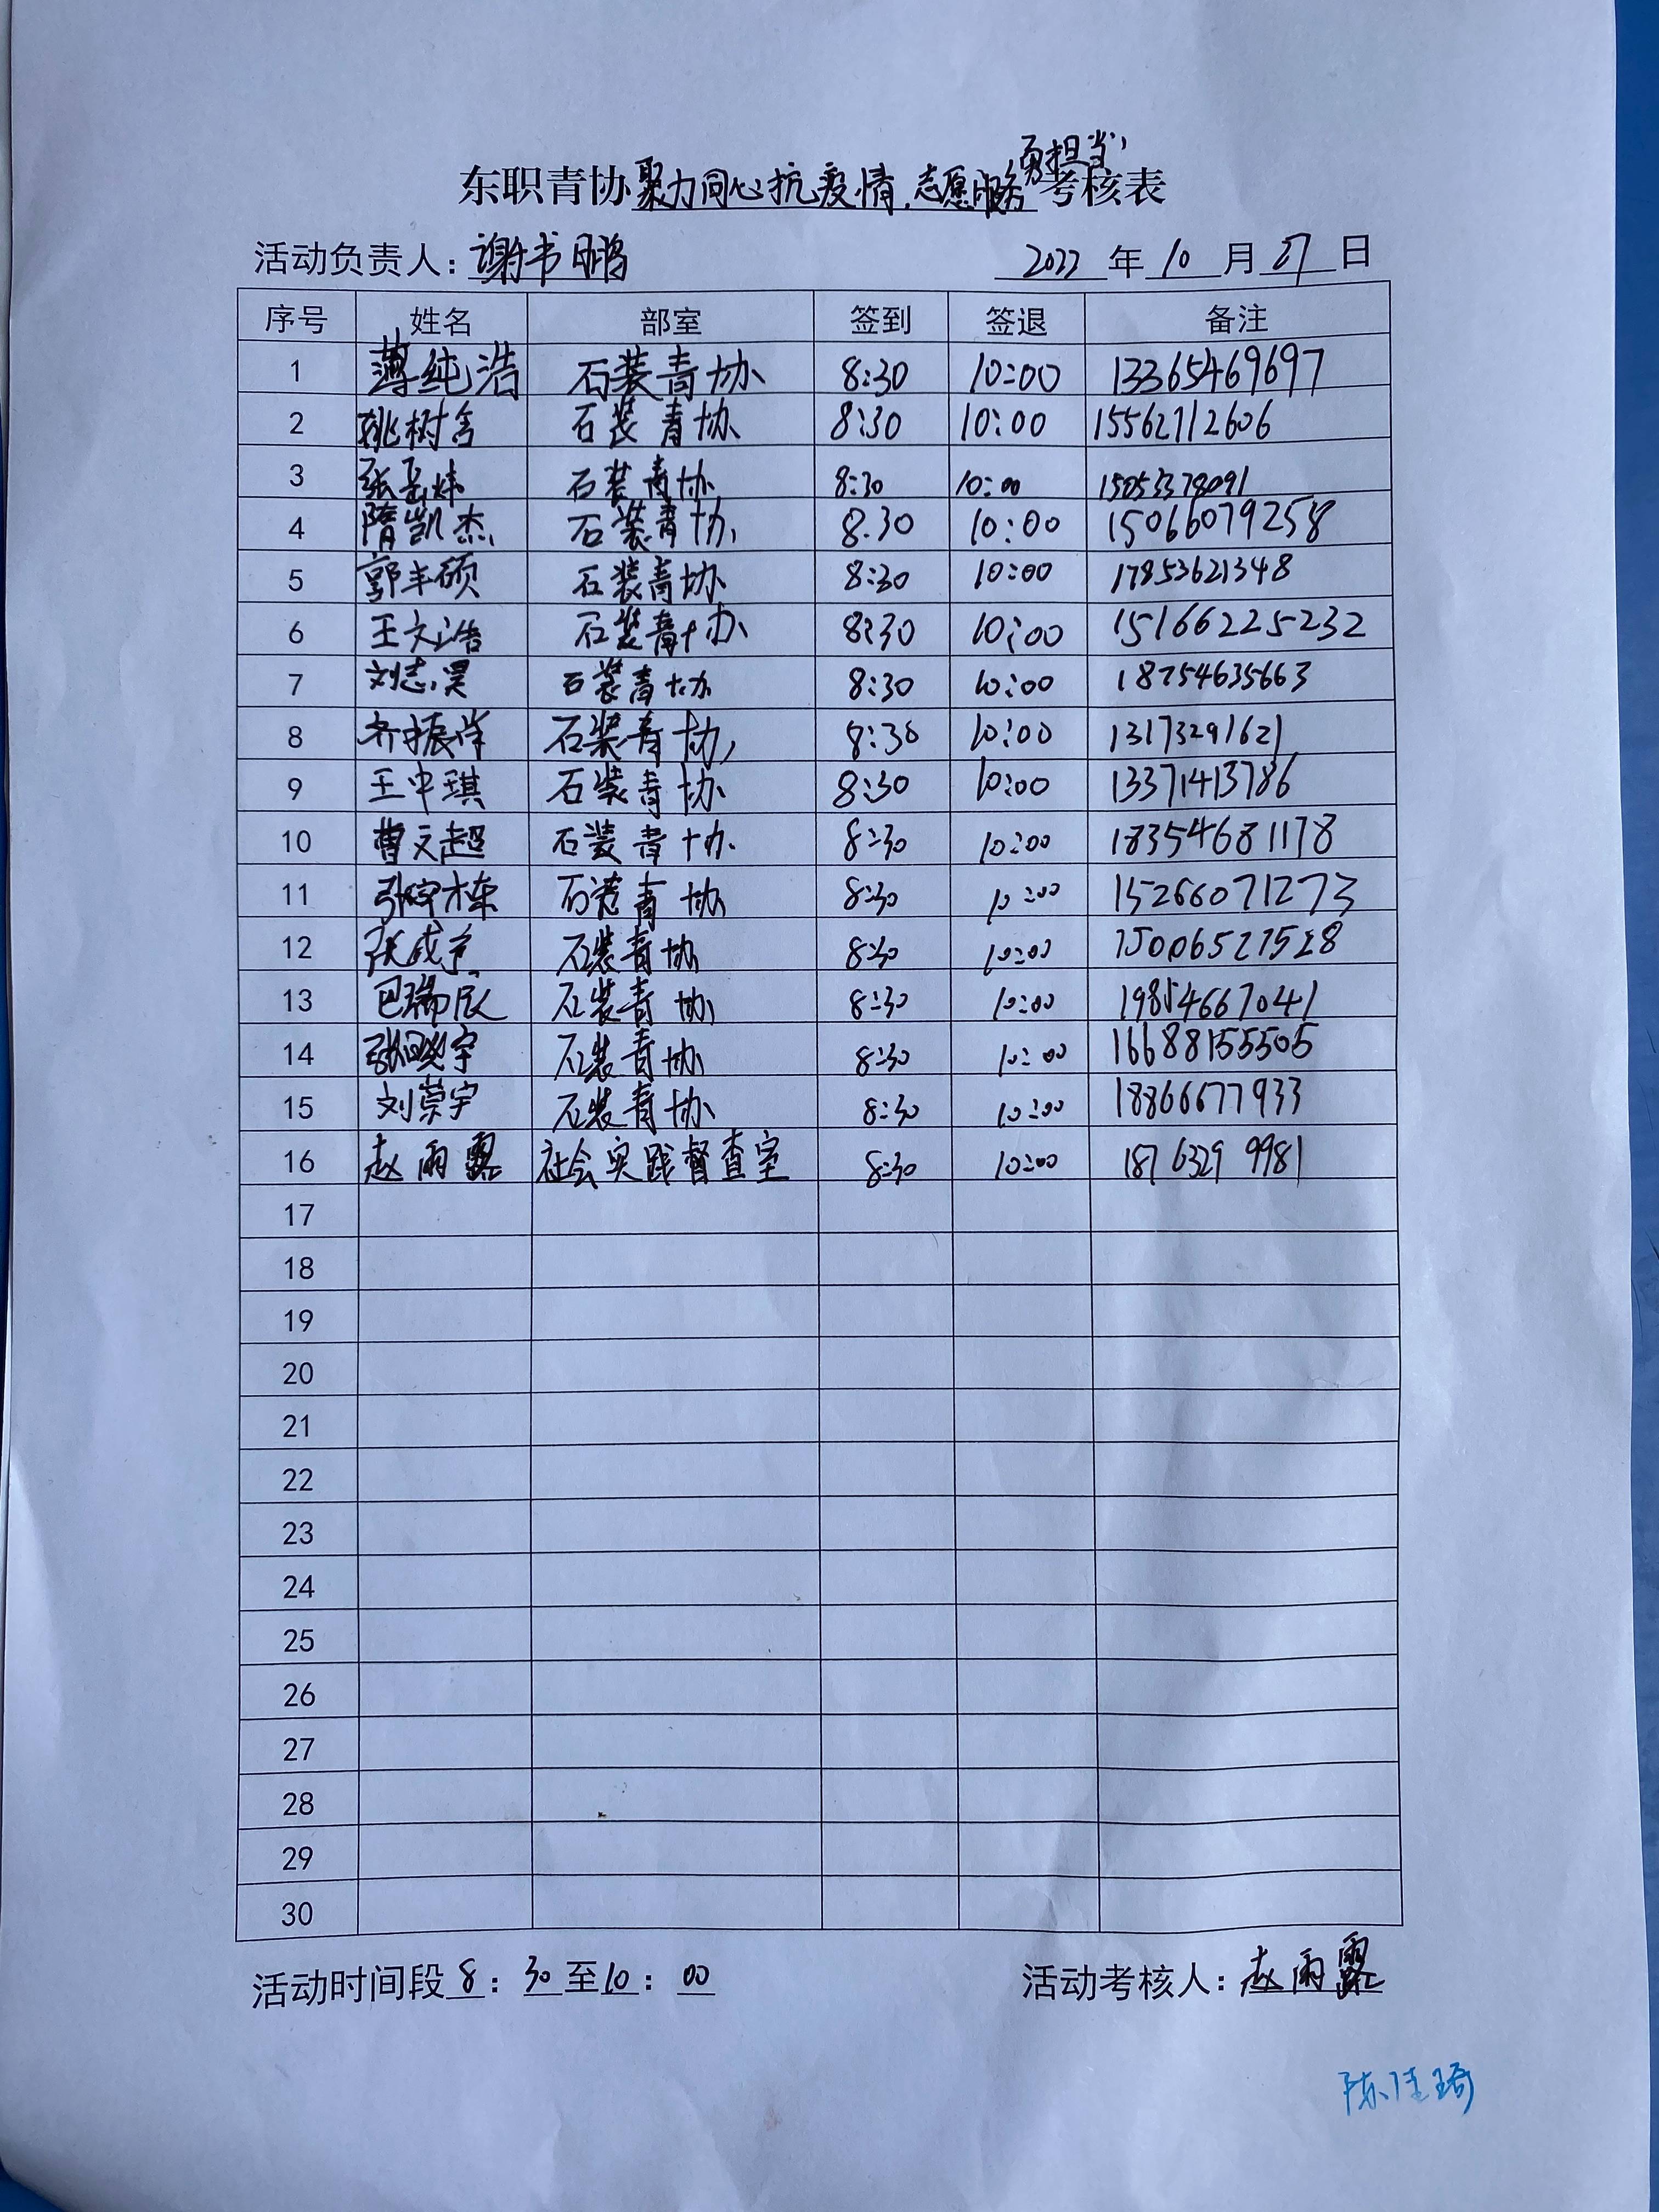 勇担当
东职青协聚力同心抗疫情,志愿服务考核表
活动负责人:谢书鹏 2022年10月27日
序号 姓名 部室 签到 签退 备注
1 薄纯浩 石装青协 8:30 10:00 13365469697
2 姚树含 石装青协 8:30 10:00 15562712606
3 石装青协 8:30 10:00 15053378091
4 隋凯杰 石装青协 8:30 10:00 15066079258
5 郭丰硕 石装青协 8:30 10:00 17853621348
6 王文浩 石装青协 8:30 10:00 15166225232
7 刘志昊 石装青协 8:30 10:00 18754635663
8 齐振洋 石装青协 8:30 10:00 13173291621
9 王中琪 石装青协 8:30 10:00 13371413786
10 曹文超 石装青协 8:30 10:00 18354681178
11 张宇栋 石装青协 8:30 10:00 15266071273
12 石装青协 8:30 10:00 15006527528
13 巴瑞辰 石装青协 8:30 10:00 19854667041
14 石装青协 8:30 10:00 16688155505
15 刘荣宇 石装青协 8:30 10:00 18866677933
16 赵雨露 社会实践督查室 8:30 10:00 18763299981
17
18
19
20
21
22
23
24
25
26
27
28
29
30
活动时间段8:30至10:00 活动考核人:赵雨露
陈佳琦